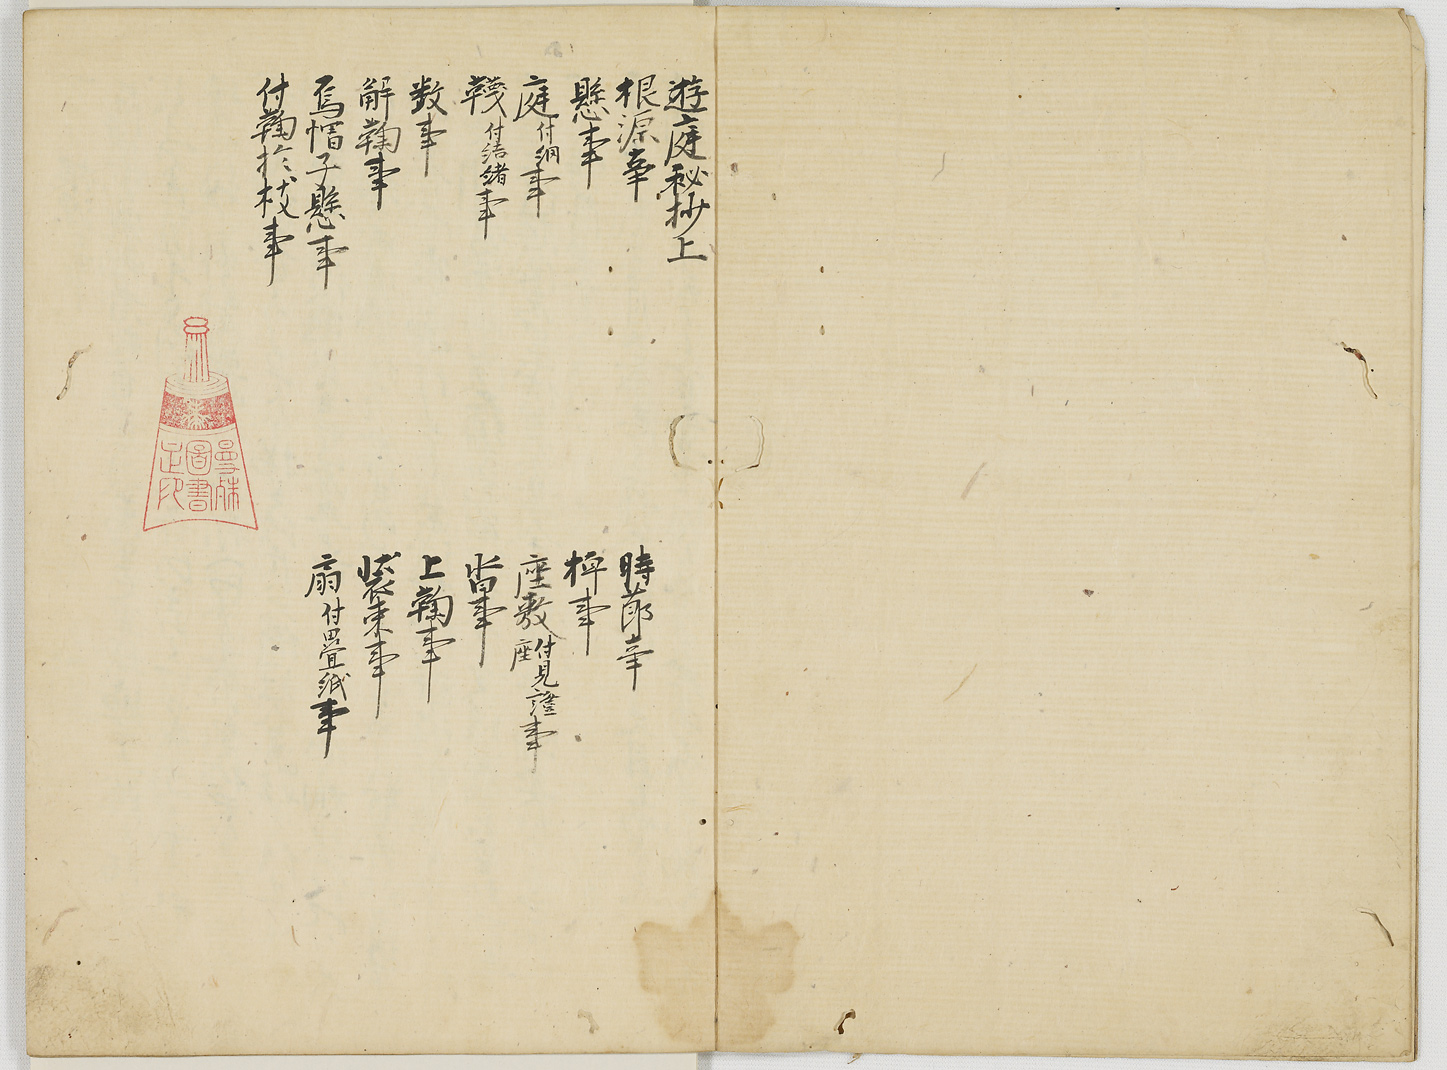 遊庭秘抄上
根源事
時節事
懸事
事
庭付網事
座敷付見證座事
韈付結緒事
沓事
数事
上鞠事
解鞠事
装束事
烏帽子懸事
扇付畳紙事
付鞠於枝事
曼殊
圖書
之印